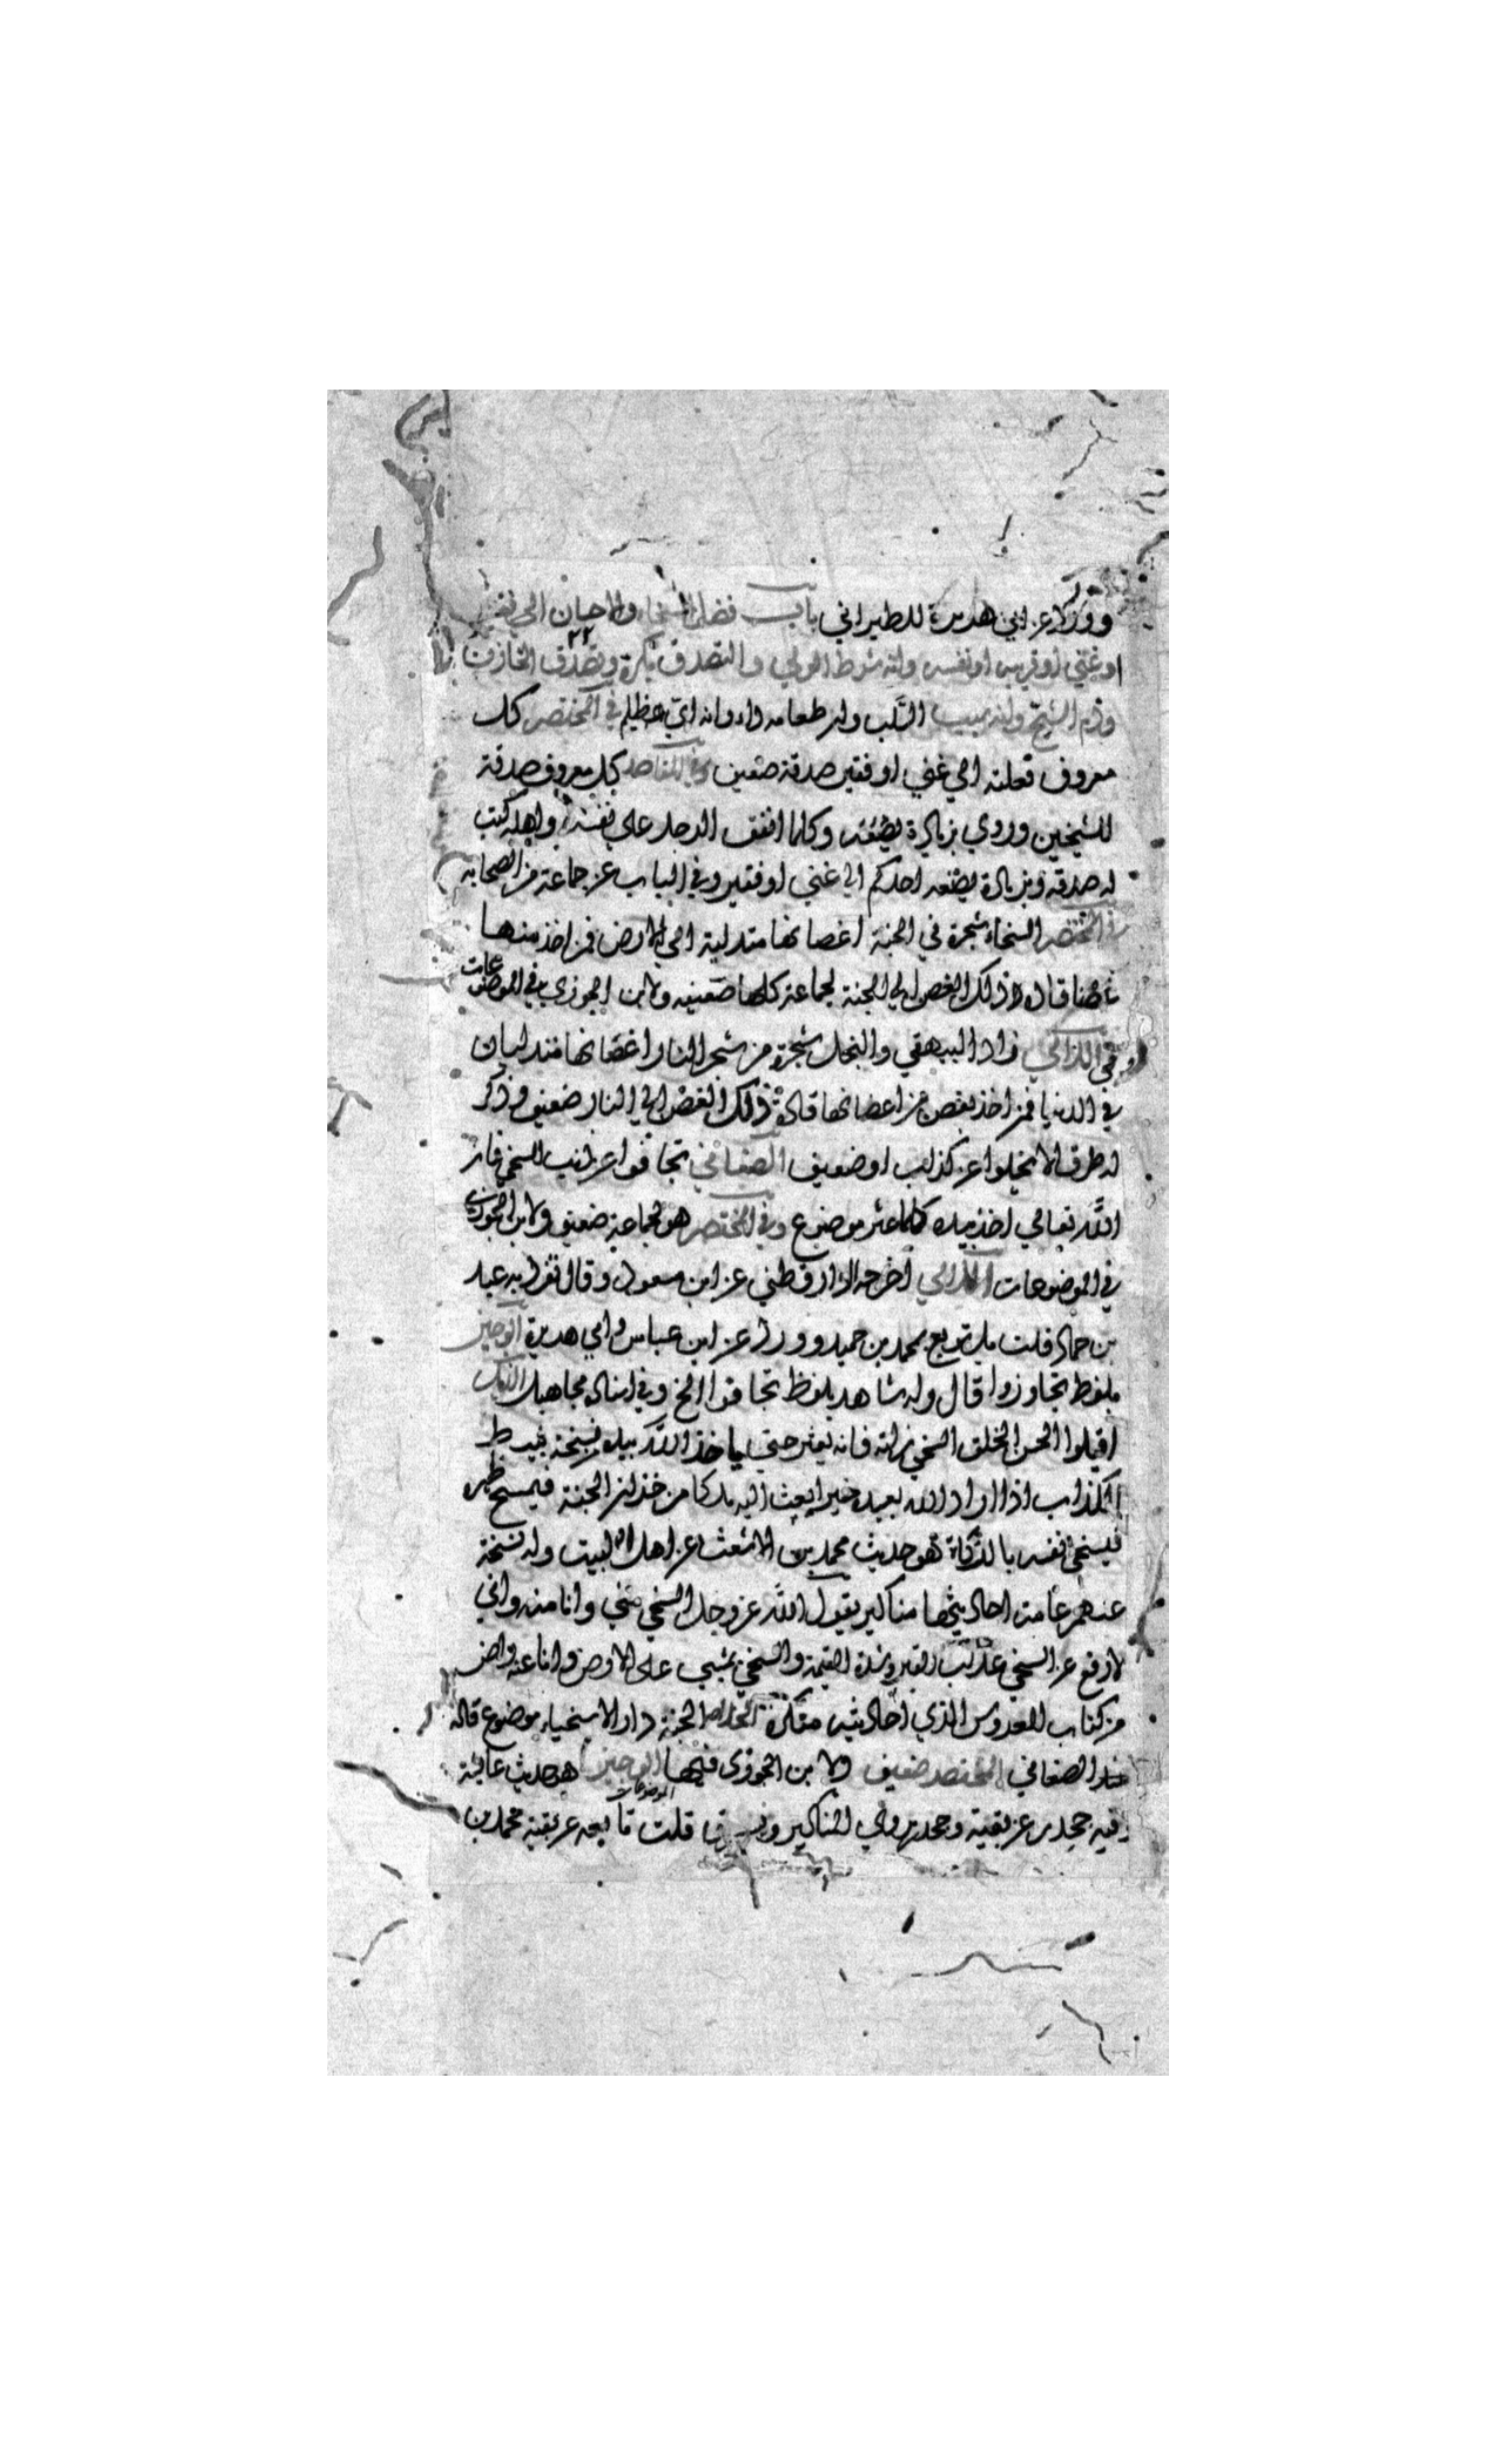 وورد عن ابي هريرة للطبراني باب فضل السخاء والاحسان الي فقير
او غني او قريب او نفسه وانه شرط الولي والتصدق بكرة وتصدق الخازن
وذم الشيخ وانه يميت القلب وان طعامه
في المختصر كل
معروف فعلته الي غني او فقير صدقة ضعيف وفي المقاصد كل معروف صدقة
للشيخين وروي بزيادة يصنعه وكلما انفق الرجل على نفسه واهله كتب
له صدقه وبزيادة يصنعه احدكم الي غني او فقير وفي الباب عن جماعة من الصحابه
في المختصر السخاء شجرة في الجنة اغصانها متدلية الي الارض فمن اخذ منها
غصنا قاده ذلك الغصن الي الجنة لجماعة كلها ضعيفه ولابن الجوزي في الموضوعات
وفي اللآلي زاد البيهقي والبخل شجرة من شجر النار اغصانها متدليات
في الدنيا فمن اخذ بغصن من اغصانها قاده ذلك الغصن الي النار ضعيف وذكر
له طرق لا تخلوا عن كذاب او ضعيف الصغاني تجافوا عن ذنب السخي فان
الله تعالي اخذ بيده كلما عثر موضوع وفي المختصر هو لجماعة ضعيف ولابن الجوزي
في الموضوعات اللآلي اخرجه الدارقطني عن ابن مسعود وقال تفرد به عبد
بن حماد قلت بل توبع محمد بن حميد وورد عن ابن عباس وابي هريرة الوجيز
بلفظ تجاوزوا قال وله شاهد بلفظ تجافوا الخ وفي اسناده مجاهيل الذيل
اقيلوا الحسن الخلق السخي زلته فانه يعثر حتي ياخذ الله بيده نسخة نبيط
الكذاب اذا اراد الله بعبده خيرا بعث اليه ملكا من خزان الجنة فيمسح ظهره
فيسخي نفسه بالزكاة هو حديث محمد بن الاشعث عن اهل البيت وله نسخة
عنهم عامة احاديثها مناكير يقول الله عز وجل السخي مني وانا منه واني
لارفع عن السخي عذاب القبر وشدة القيمة والسخي يمشي على الارض وانا عنه راض
من كتاب العروس الذي احاديثه منكرة الخلاصة الجنة دار الاسخياء موضوع قاله
الصغاني المختصر ضعيف ولا بن الجوزي فيها الوجيز هو حديث عائشة
الموضوعات
فيه جحدر عن بقية وجحدر يروي المناكير ويسرق قلت تابعه عن بقية محمد بن